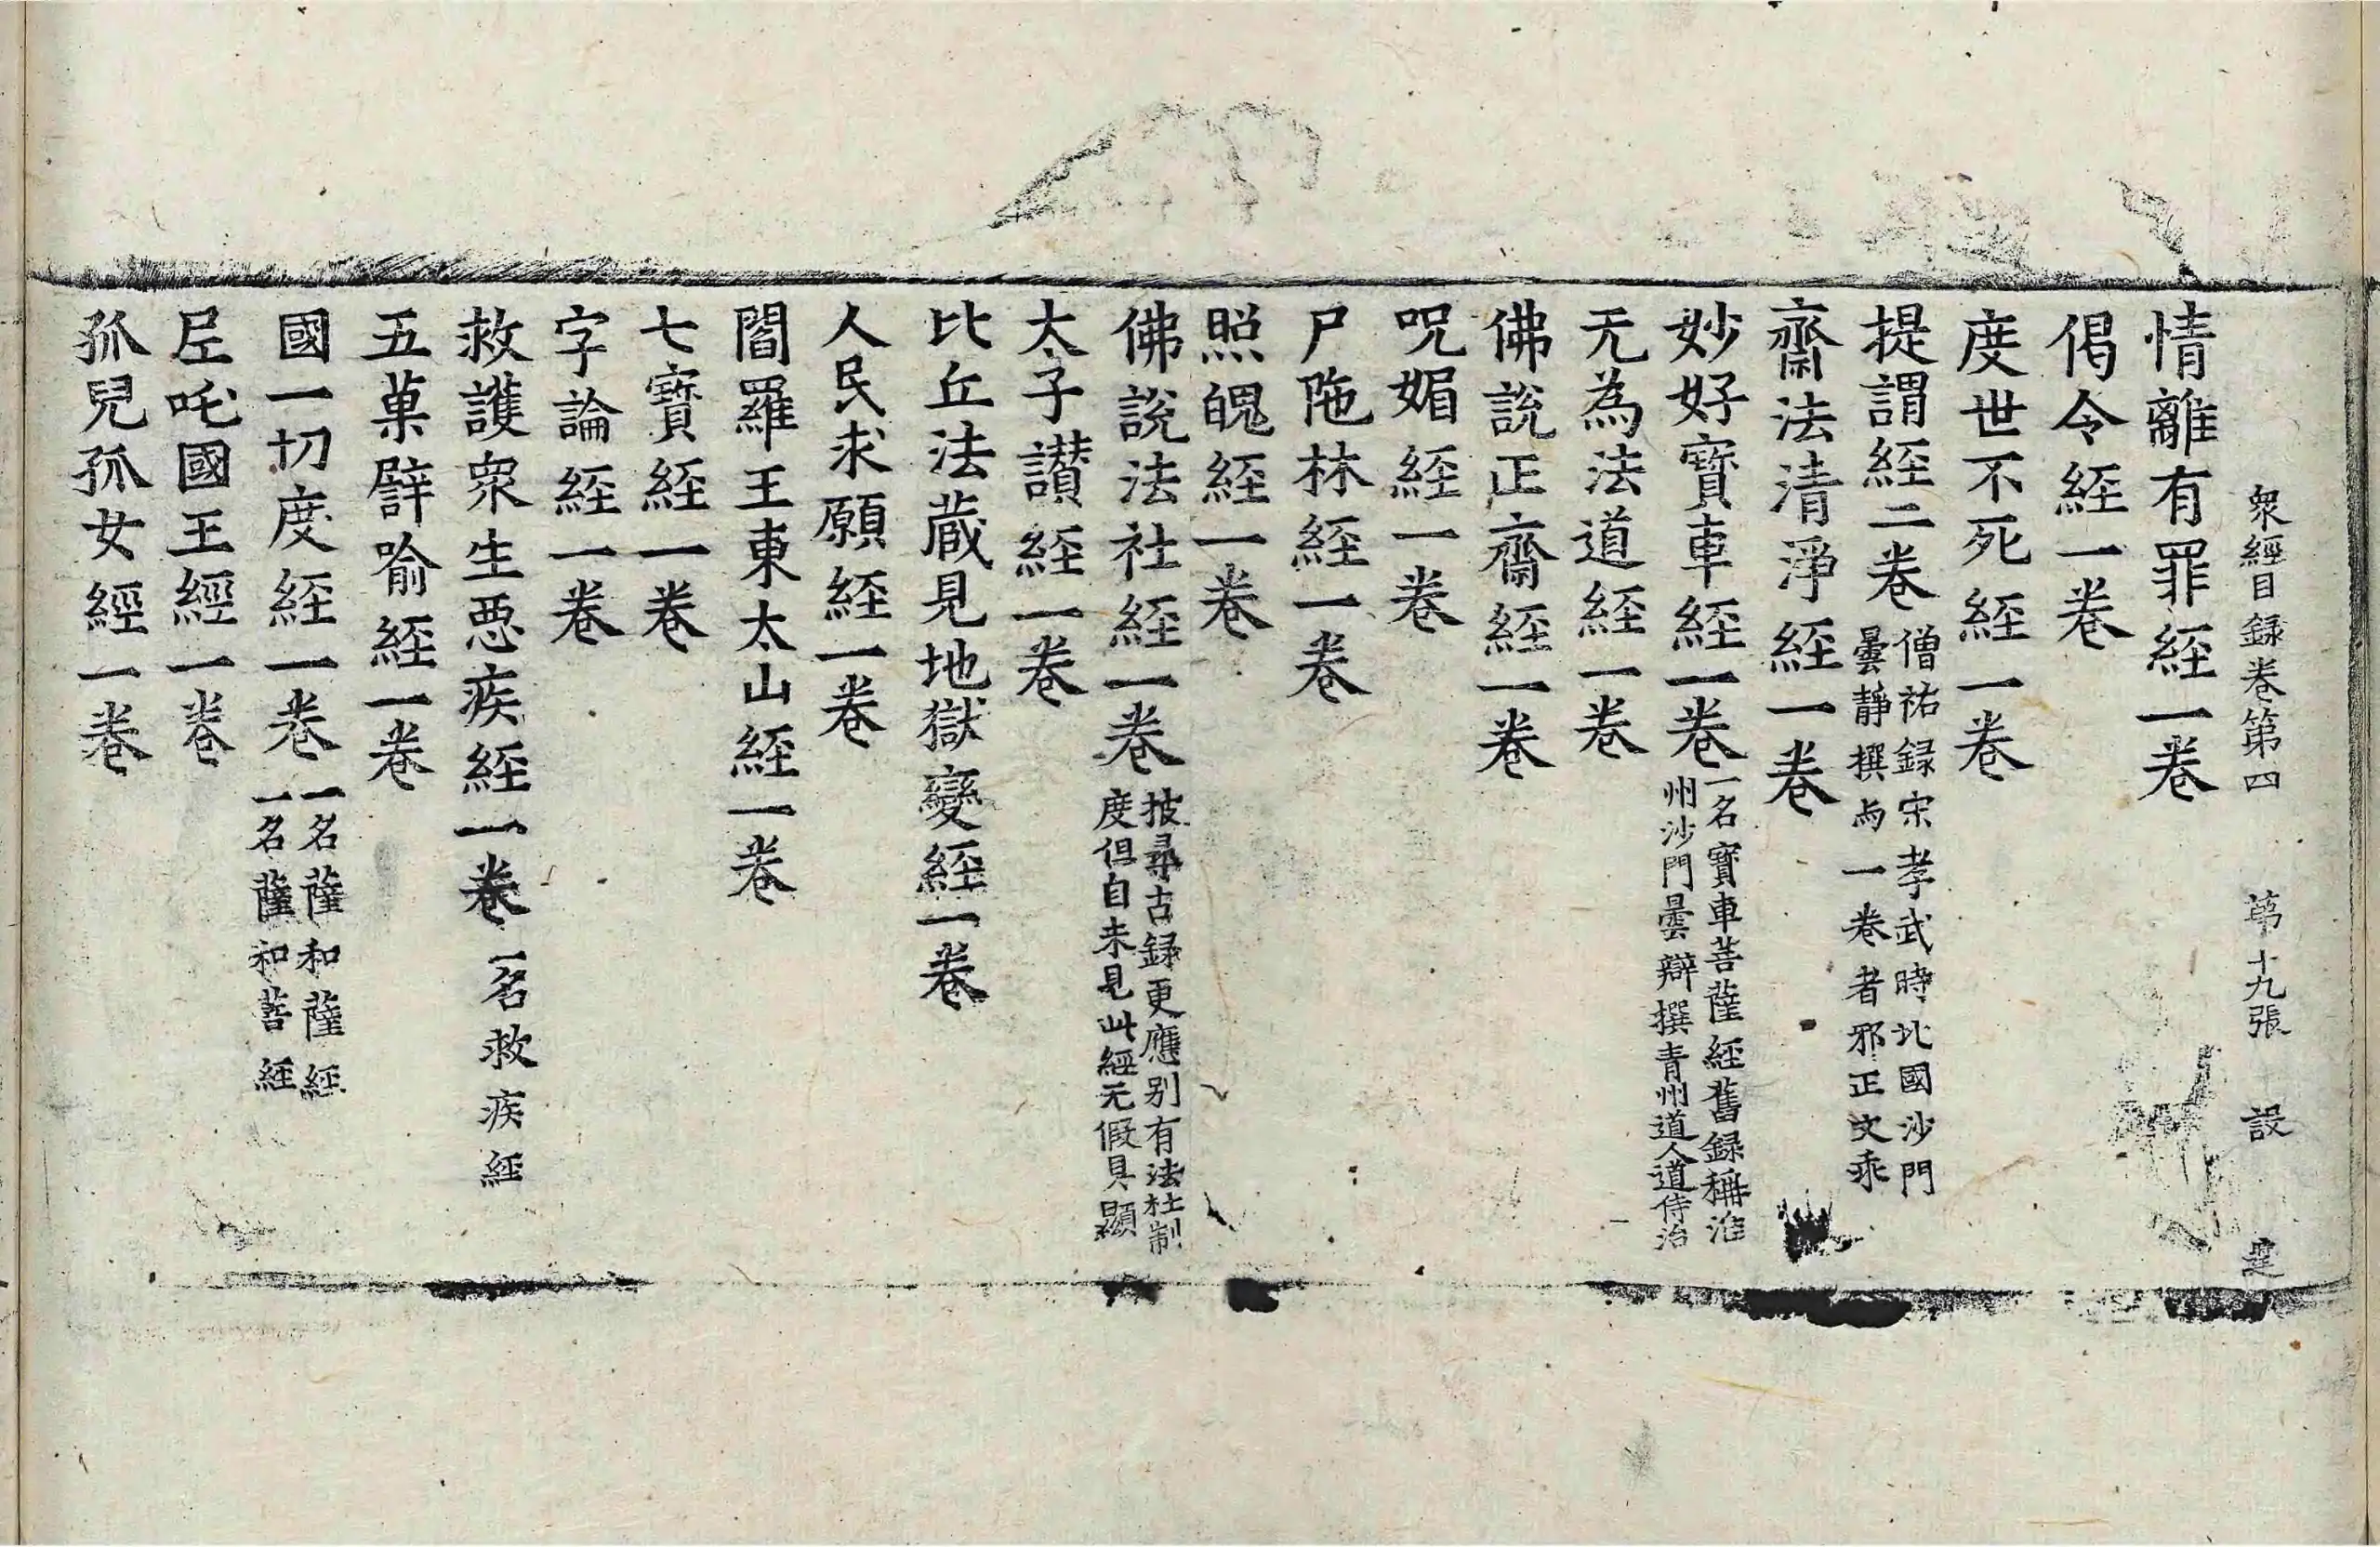 衆經目録卷第四 第十九張 設
情離有罪経一卷
偈令経一卷
度世不死経一卷
提謂経二卷 僧祐録宋孝武時北國沙門
曇靜撰為一卷者邪正文乖
齋法清淨経一卷
妙好寳車経一卷 一名寳車菩薩経舊録稱淮
州沙門曇辯撰青州道人道侍治
无為法道経一卷
佛說正齋経一卷
呪媚経一卷
尸陁林経一卷
照魄経一卷
佛說法社経一卷 披尋古録更應别有法社制
度但自未見此經无假具顯
太子讃経一卷
比丘法蔵見地獄變経一卷
人民求願経一卷
閻羅王東太山経一卷
七寳経一卷
字論経一卷
救護衆生惡疾経一卷 一名救疾経
五菓譬喻経一卷
國一切度経一卷 一名薩和薩経
一名薩和菩経
𡰱吒國王經一卷
孤兒孤女經一卷